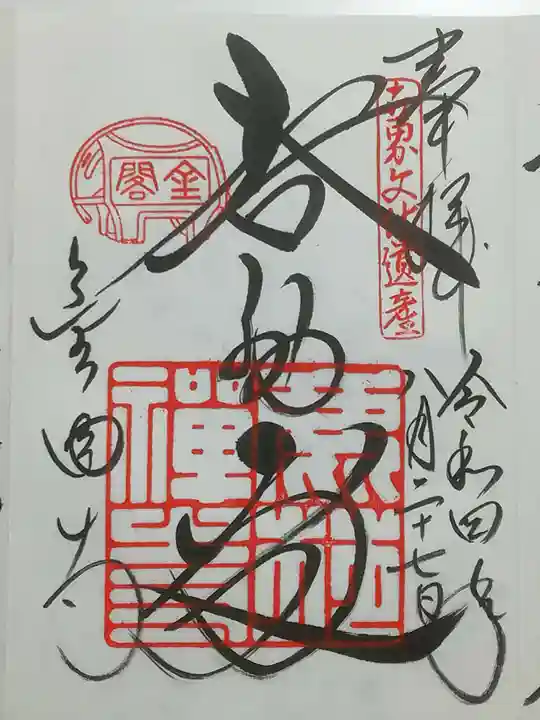 奉拝
令和四年
八月二十七日
世界文化遺産
舎利殿
鹿苑禅寺
金閣
金閣寺